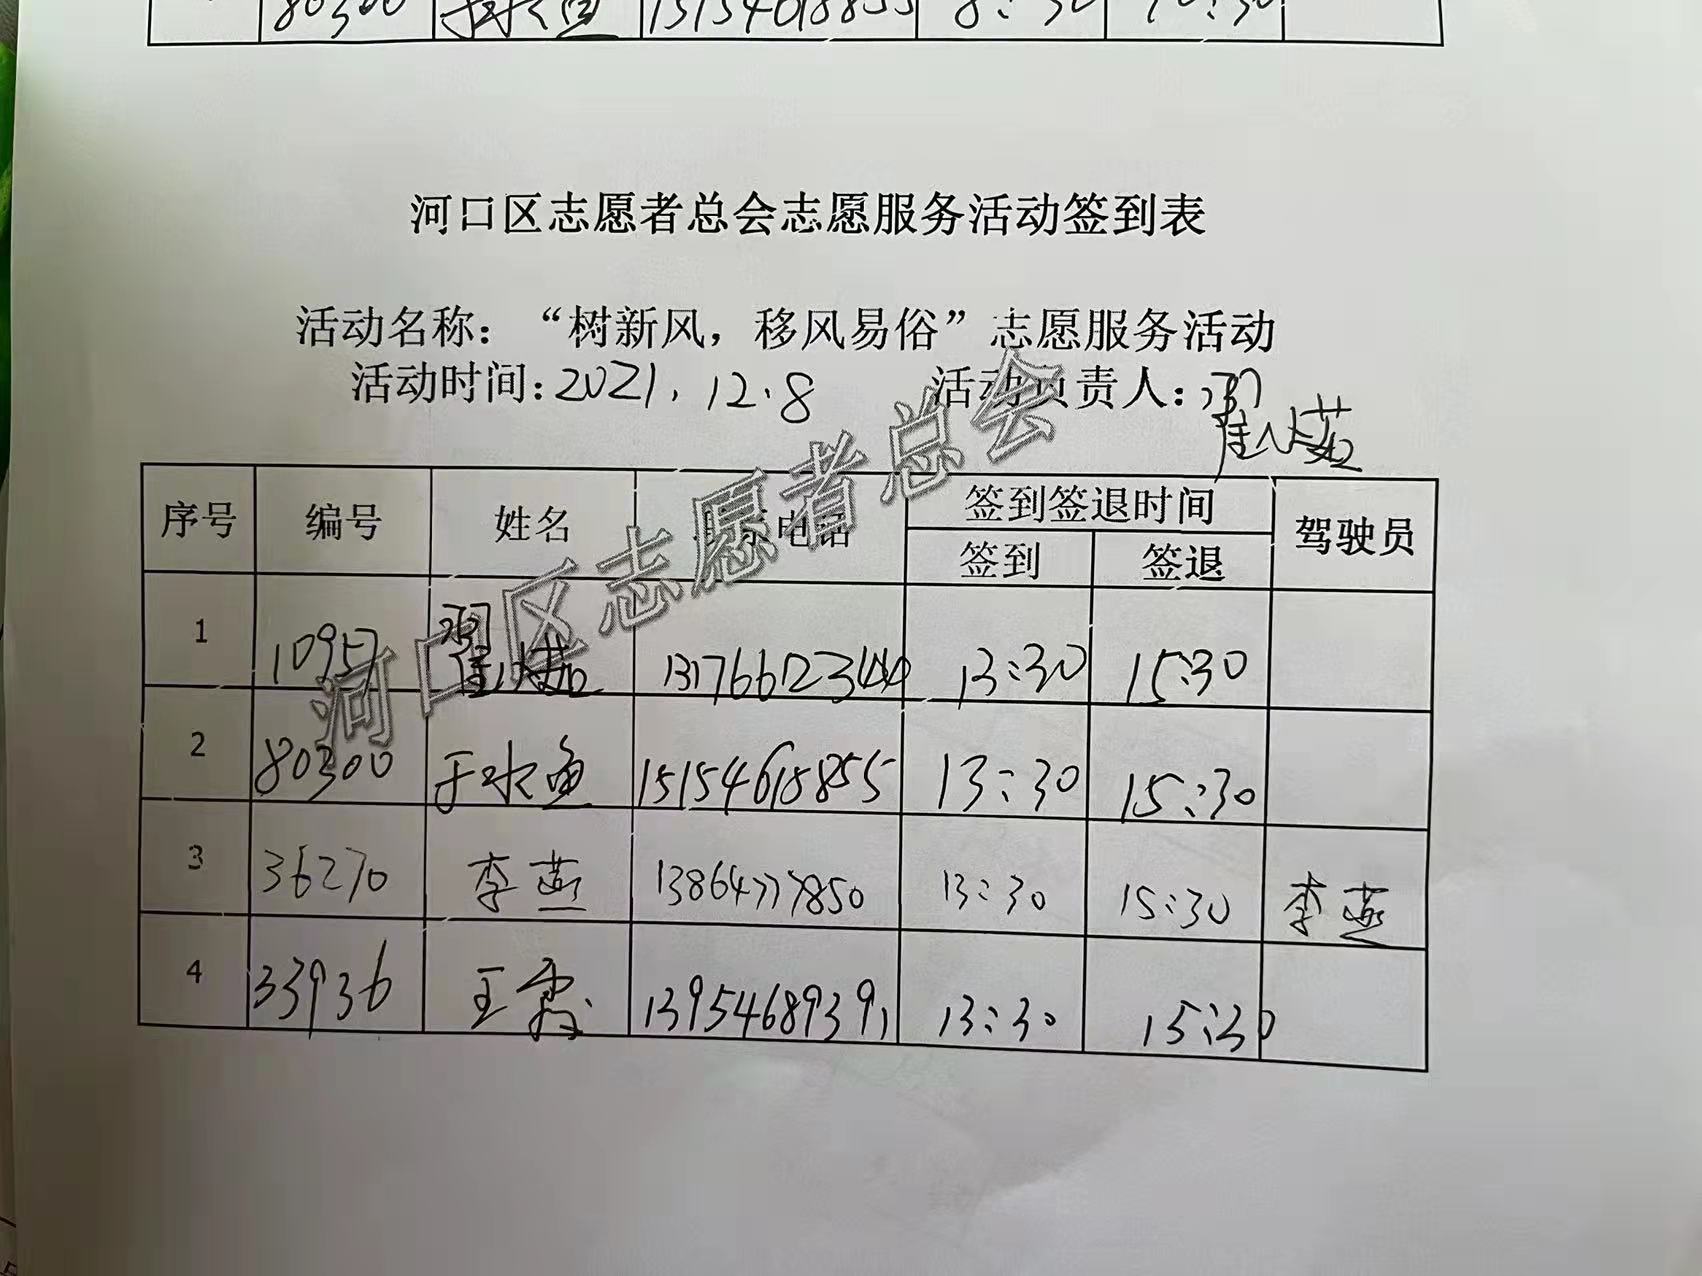 80300 15154618855 8:30 10:30
河口区志愿者总会志愿服务活动签到表
活动名称：“树新风，移风易俗”志愿服务活动
活动时间：2021.12.8 活动负责人：翟
序号 编号 姓名 联系电话 签到签退时间 驾驶员
签到 签退
1 10957 翟 13:30 15:30
2 80300 于水鱼 15154618855 13:30 15:30
3 36270 李燕 13864777850 13:30 15:30 李燕
4 33936 王霞 13954689391 13:30 15:30
河口区志愿者总会